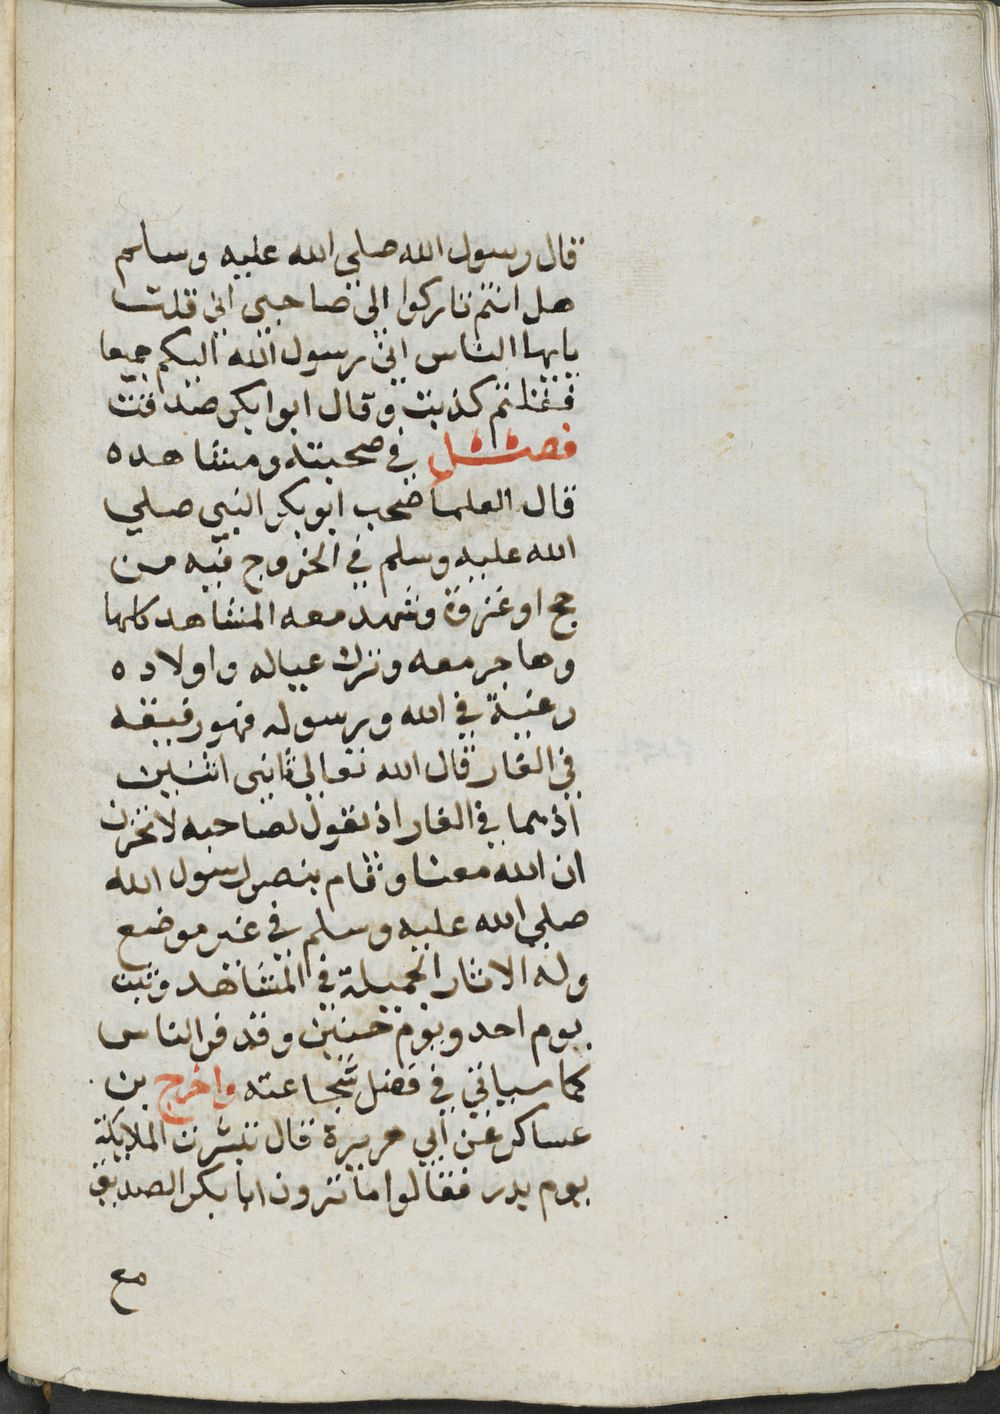 قال رسول الله صلي الله عليه وسلم
هل انتم تاركوا الى صاحبي اني قلت
يايها الناس اني رسول الله اليكم جميعا
فقلتم كذبت وقال ابوا بكر صدقت
فصل في صحبته ومشاهده
قال العلما صحب ابو بكر النبي صلي
الله عليه وسلم في الخروج فيه من
حج او غزوة وشهد معه المشاهد كلها
وهاجر معه وترك عياله واولاده
رغبة في الله ورسوله فهو رفيقه
في الغار قال الله تعالي ثانى اثنين
اذ هما في الغار اذ يقول لصاحبه لا تحزن
ان الله معنا وقام بنصر رسول الله
صلي الله عليه وسلم في غير موضع
وله الاثار الجميلة في المشاهد وثبت
يوم احد ويوم حنين وقد فر الناس
كما سياتي في فضل شجاعته واخرج بن
عساكر عن ابي هريرة قال تبشرت الملايكة
يوم بدر فقالوا ما ترون ابا بكر الصديق
مع